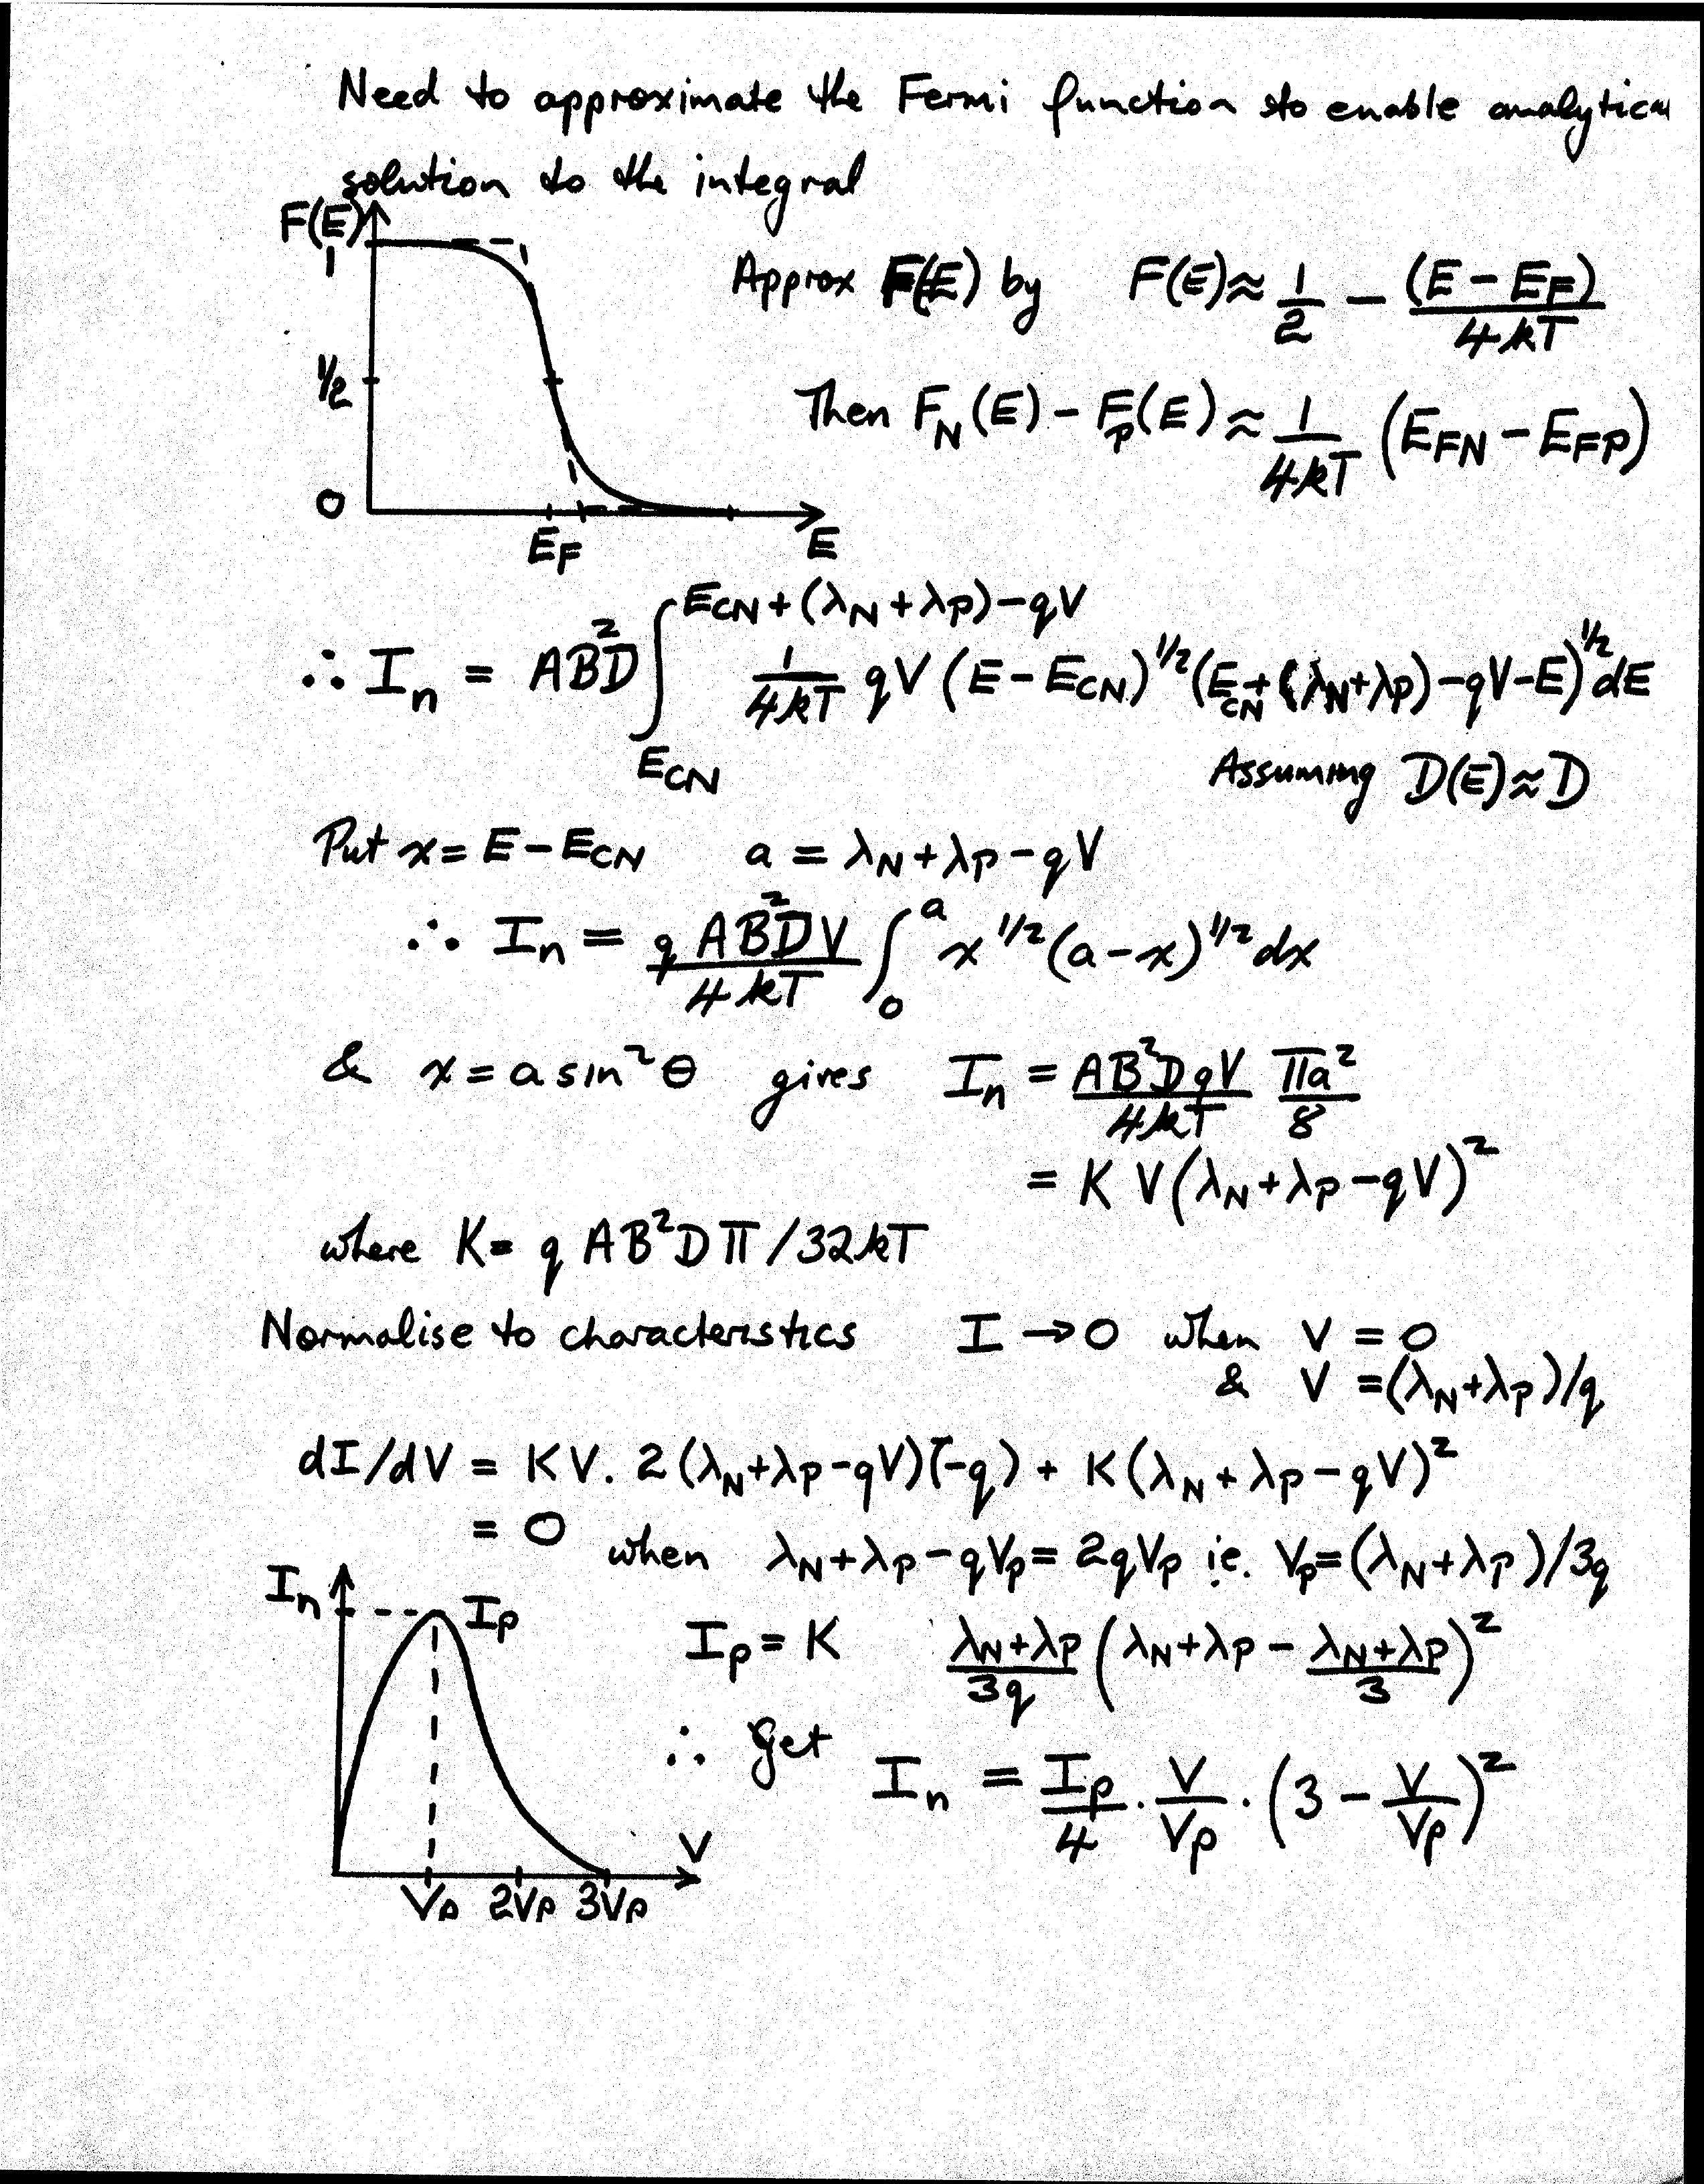 Need to approximate the Fermi function to enable analytical
solution to the integral
F(E)
1
1/2
0
E_F
E
Approx F(E) by F(E) ≈ 1/2 − (E − E_F)/4kT
Then F_N(E) − F_P(E) ≈ 1/4kT (E_FN − E_FP)
∴ I_n = AB²D ∫_{E_CN}^{E_CN + (λ_N + λ_P) − qV} 1/4kT qV (E − E_CN)^{1/2} (E_CN + (λ_N + λ_P) − qV − E)^{1/2} dE
Assuming D(E) ≈ D
Put x = E − E_CN a = λ_N + λ_P − qV
∴ I_n = q AB²D V/4kT ∫_0^a x^{1/2} (a − x)^{1/2} dx
& x = a sin²θ gives I_n = AB²D qV/4kT πa²/8
= K V (λ_N + λ_P − qV)²
where K = q AB²D π / 32kT
Normalise to characteristics I → 0 when V = 0
& V = (λ_N + λ_P)/q
dI/dV = KV. 2 (λ_N + λ_P − qV)(−q) + K(λ_N + λ_P − qV)²
= 0 when λ_N + λ_P − qV_P = 2qV_P ie. V_P = (λ_N + λ_P)/3q
I_n
I_P
V
V_P 2V_P 3V_P
I_P = K (λ_N + λ_P)/3q (λ_N + λ_P − (λ_N + λ_P)/3)²
∴ get I_n = I_P/4 . V/V_P . (3 − V/V_P)²